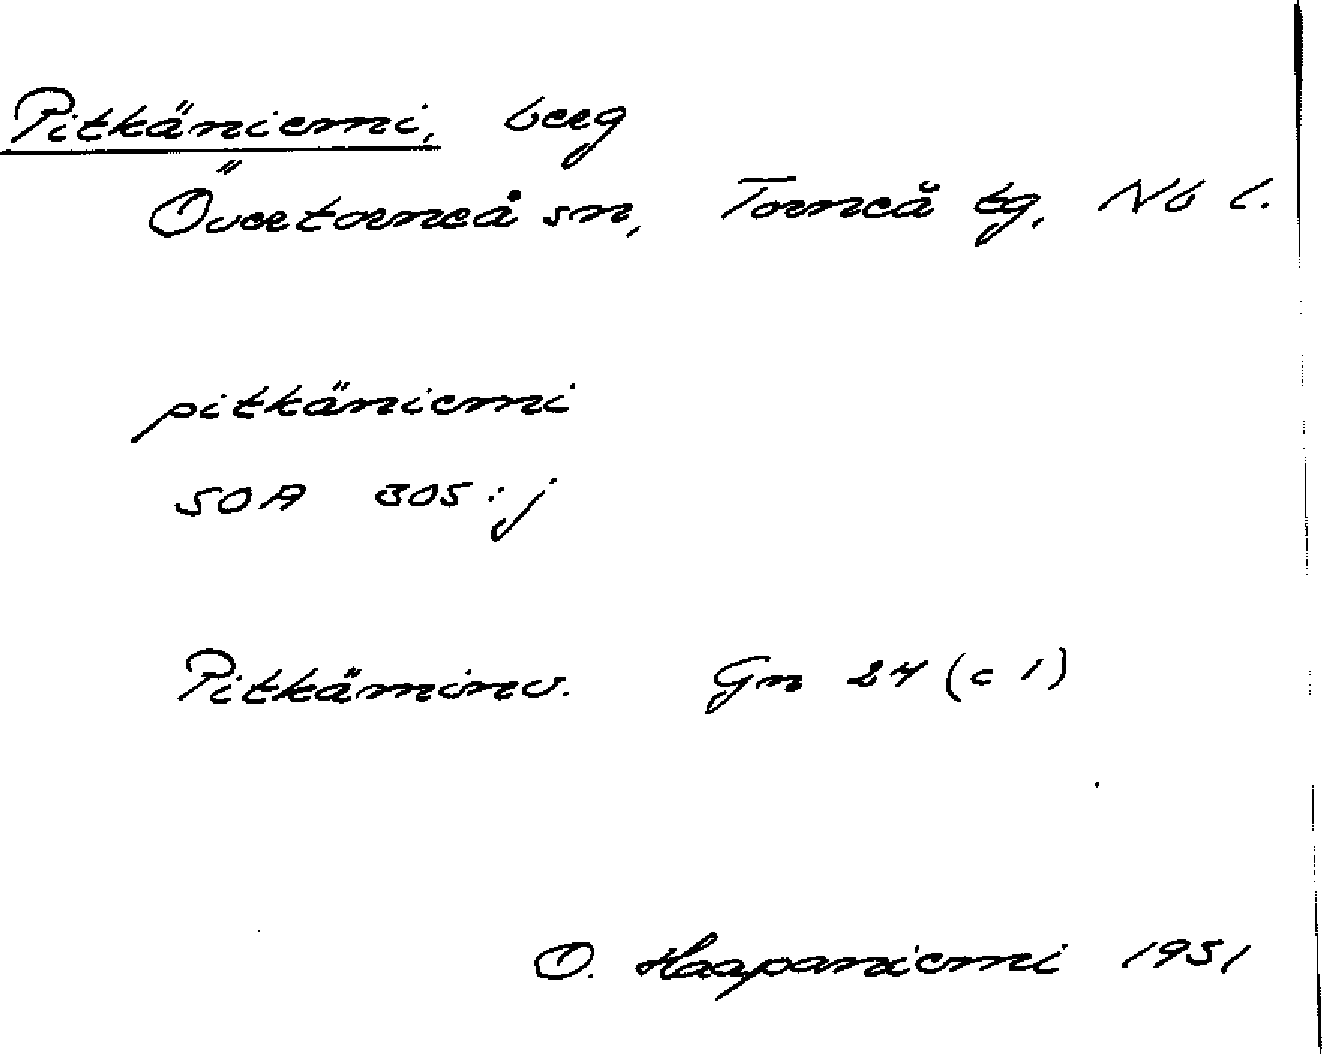 Pitkäniemi, berg
Övertorneå sn, Torneå tg, Nb l.
pitkäniemi
SOA 305:j
Pitkäminv. Gn 24 (c 1)
O. Haapaniemi 1931